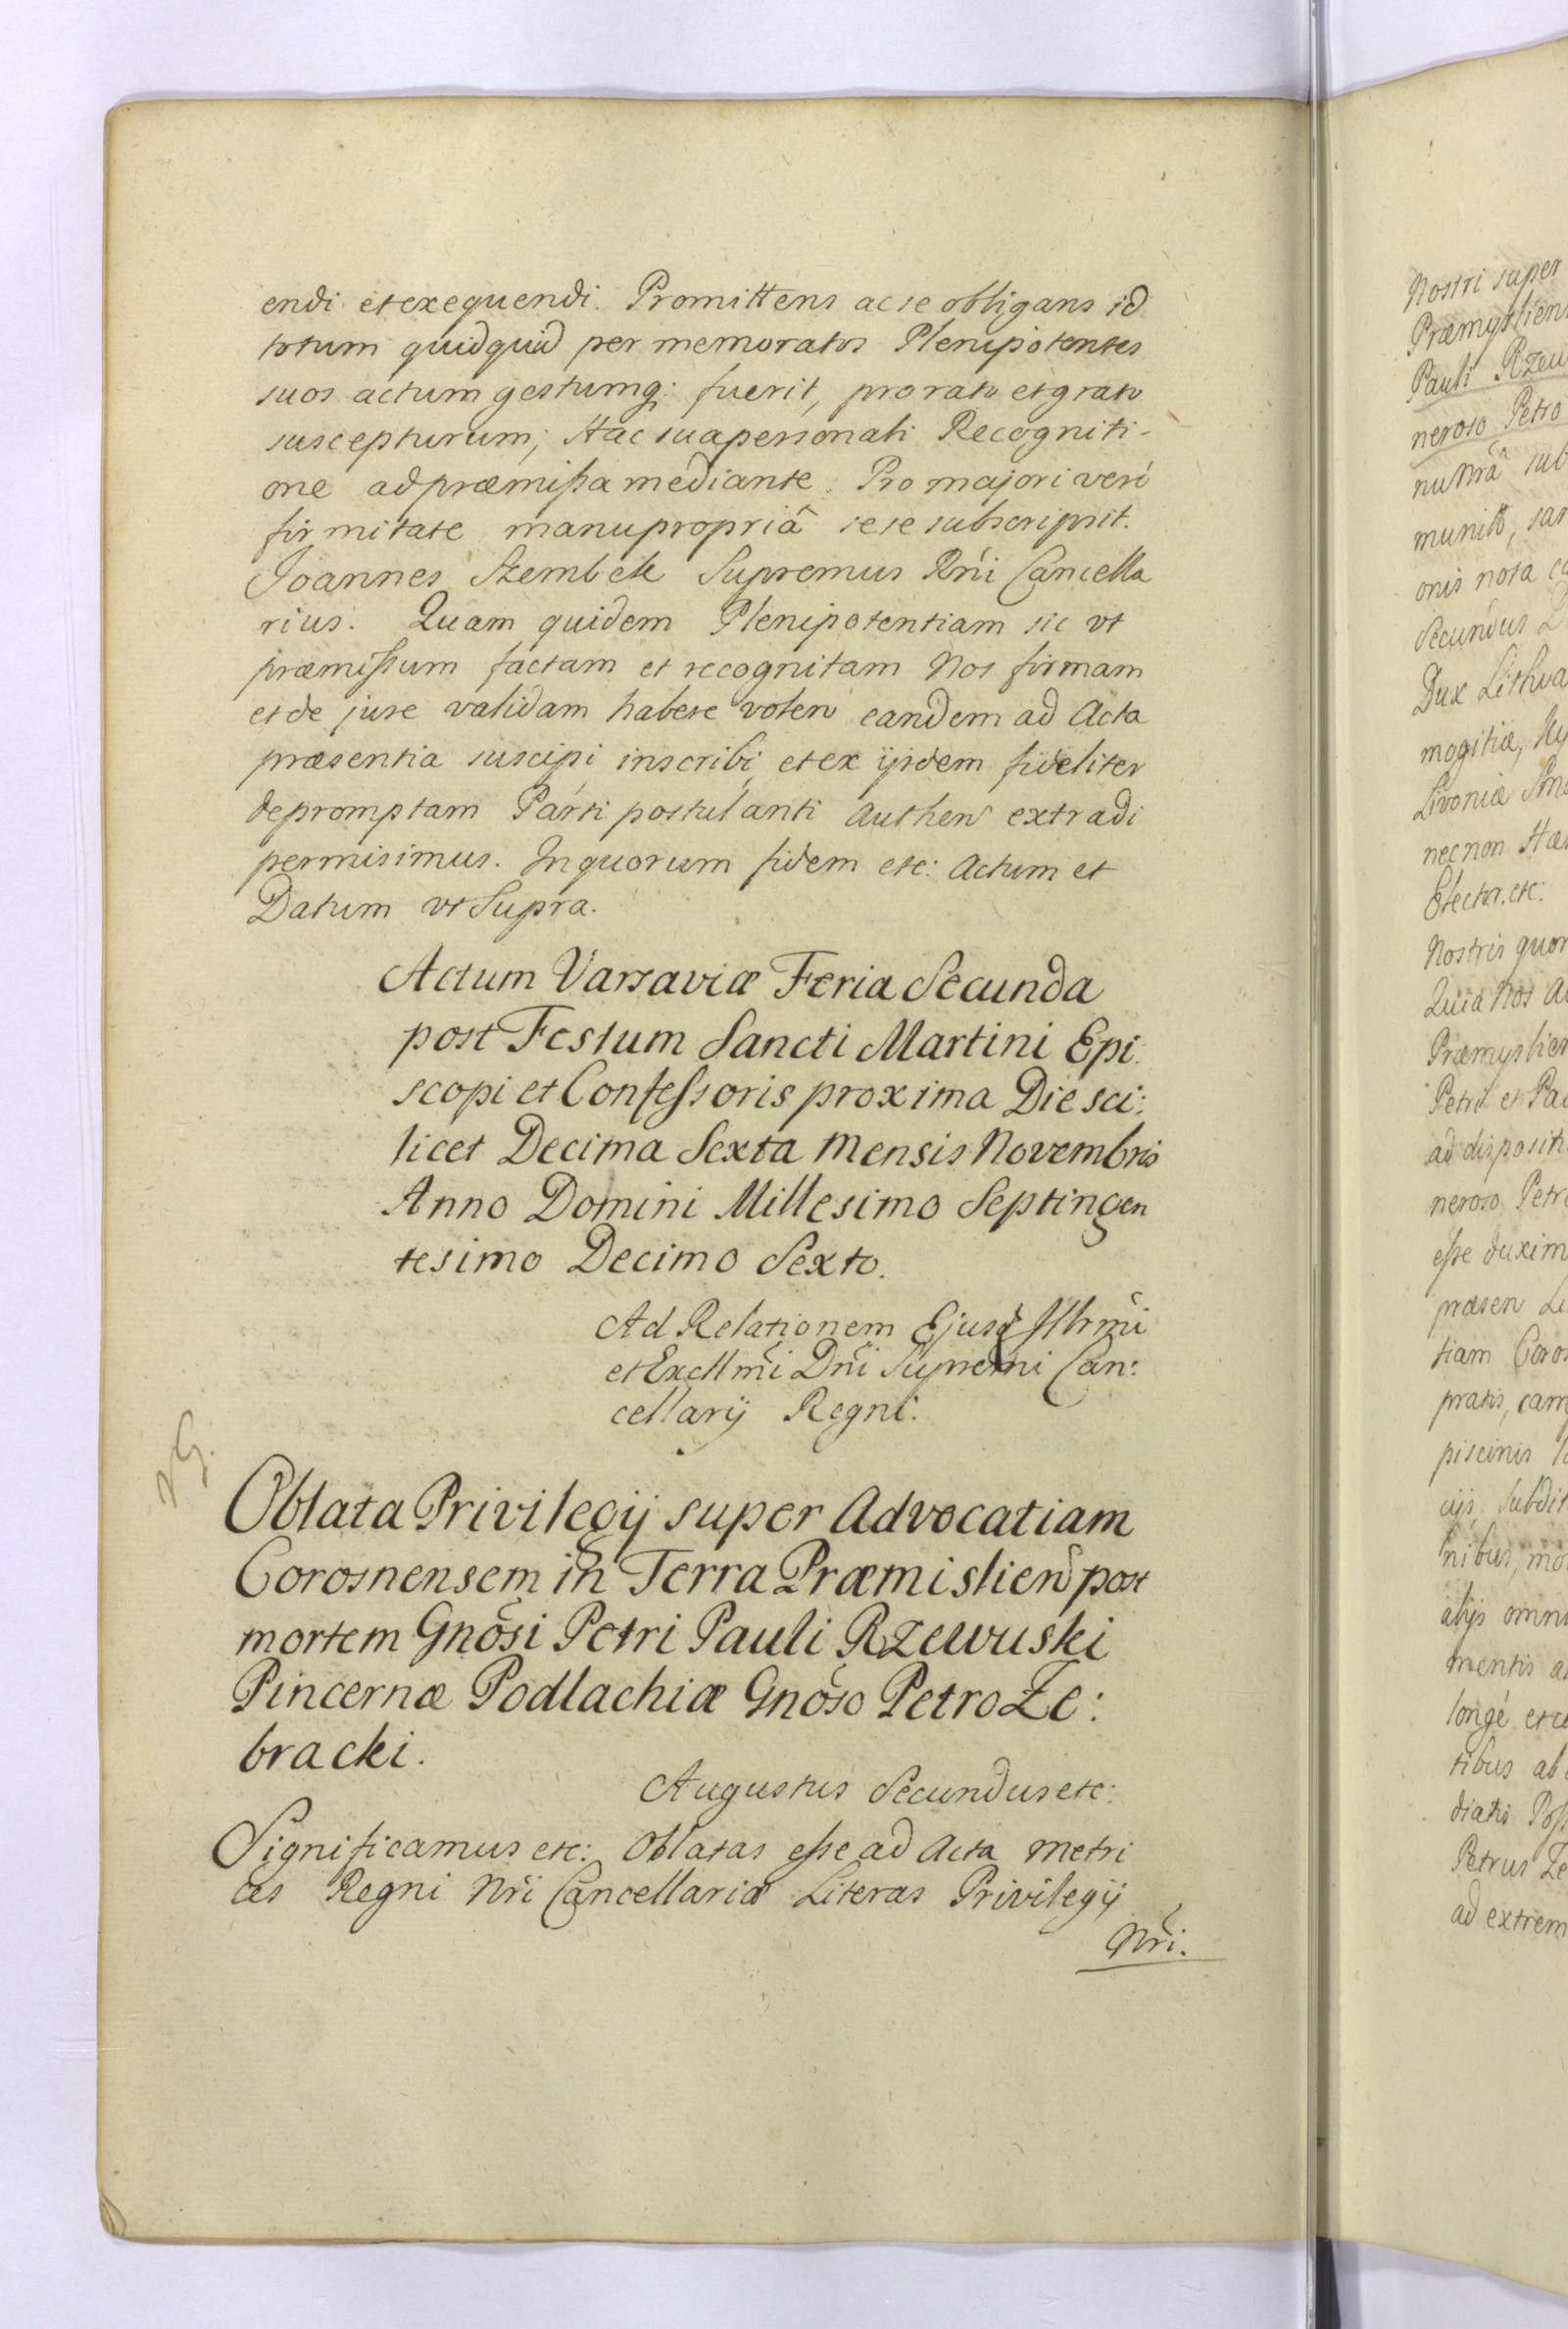 endi et exequendi. Promittens ac se obligans id
totum quidquid per memoratos Plenipotentes
suos actum gestumq: fuerit, pro rato et grato
suscepturum; Hac sua personali Recogniti-
one ad præmißa mediante. Pro majori veró
firmitate manu propriâ sese subscripsit.
Joannes Szembek Supremus Rńi Cancella
rius. Quam quidem Plenipotentiam sic vt
præmißum factam et recognitam Nos firmam
et de jure validam habere volen eandem ad Acta
præsentia suscipi inscribi, et ex ijsdem fideliter
depromptam Parti postulanti authen extradi
permisimus. In quorum fidem etc: Actum et
Datum vt Supra.
Actum Varsaviæ Feria Secunda
post Festum Sancti Martini Epi:
scopi et Confeßoris proxima Die sci:
licet Decima Sexta Mensis Novembris
Anno Domini Millesimo Septingen
tesimo Decimo Sexto.
Ad Relationem Ejusd Illrmi
et Excllmi Dni Supremi Can:
cellarij Regni.
Oblata Privilegij super Advocatiam
Corosnensem in Terra Præmislien post
mortem Gnosi Petri Pauli Rzewuski
Pincernæ Podlachiæ Gnoso Petro Ze:
bracki.
Augustus Secundus etc:
Significamus etc: Oblatas eße ad Acta Metri
ces Regni Nri Cancellariæ Literas Privilegij
Nri.
Nostri super
Præmyslien
Pauli Rzew
neroso Petro
nu Nrâ sub
munit
onis nota
Secundus
Dux Lithua
mogitiæ,
Livoniæ Smo
nec non Hæ
Elector. etc:
Nostris quor
Quia Nos
Præmyslien
Petri et Pa
ad disposit
neroso Petr
eße duxim
præsen
tiam Coros
pratis, cam
piscinis
cijs, Subdit
nibus, mo
alijs omni
mentis a
longé et
tibus ab
diatis Poß
Petrus Ze
ad extrem